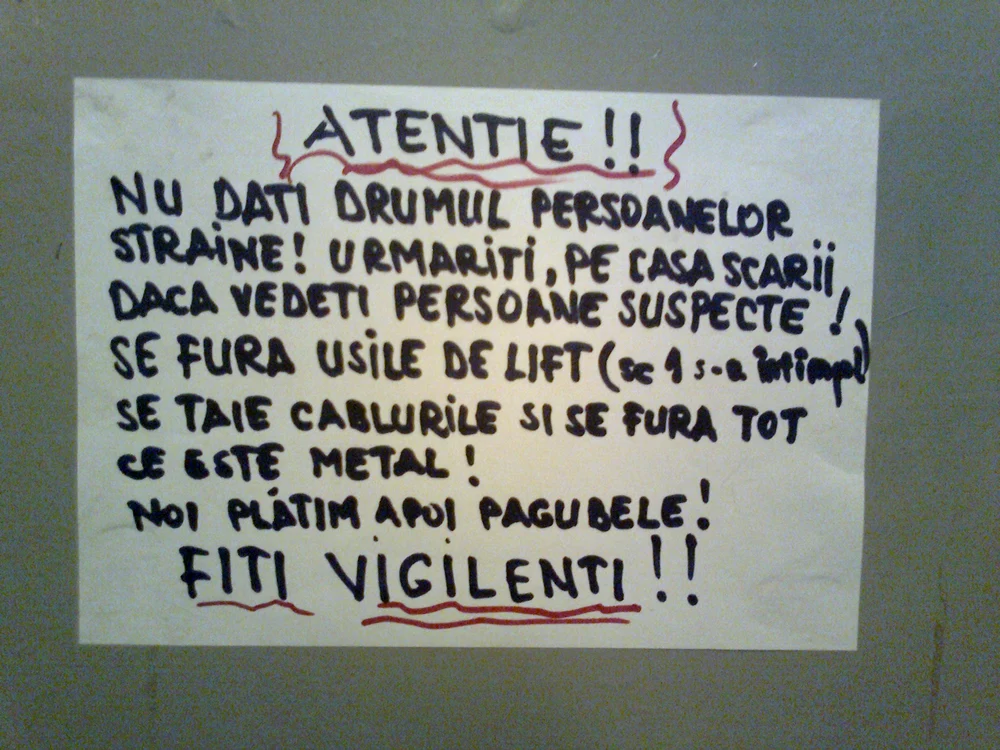 ATENTIE!!
NU DATI DRUMUL PERSOANELOR
STRAINE! URMARITI, PE CASA SCARII,
DACA VEDETI PERSOANE SUSPECTE!
SE FURA USILE DE LIFT (sc 1 s-a intimpl)
SE TAIE CABLURILE SI SE FURA TOT
CE ESTE METAL!
NOI PLĂTIM APOI PAGUBELE!
FITI VIGILENTI!!